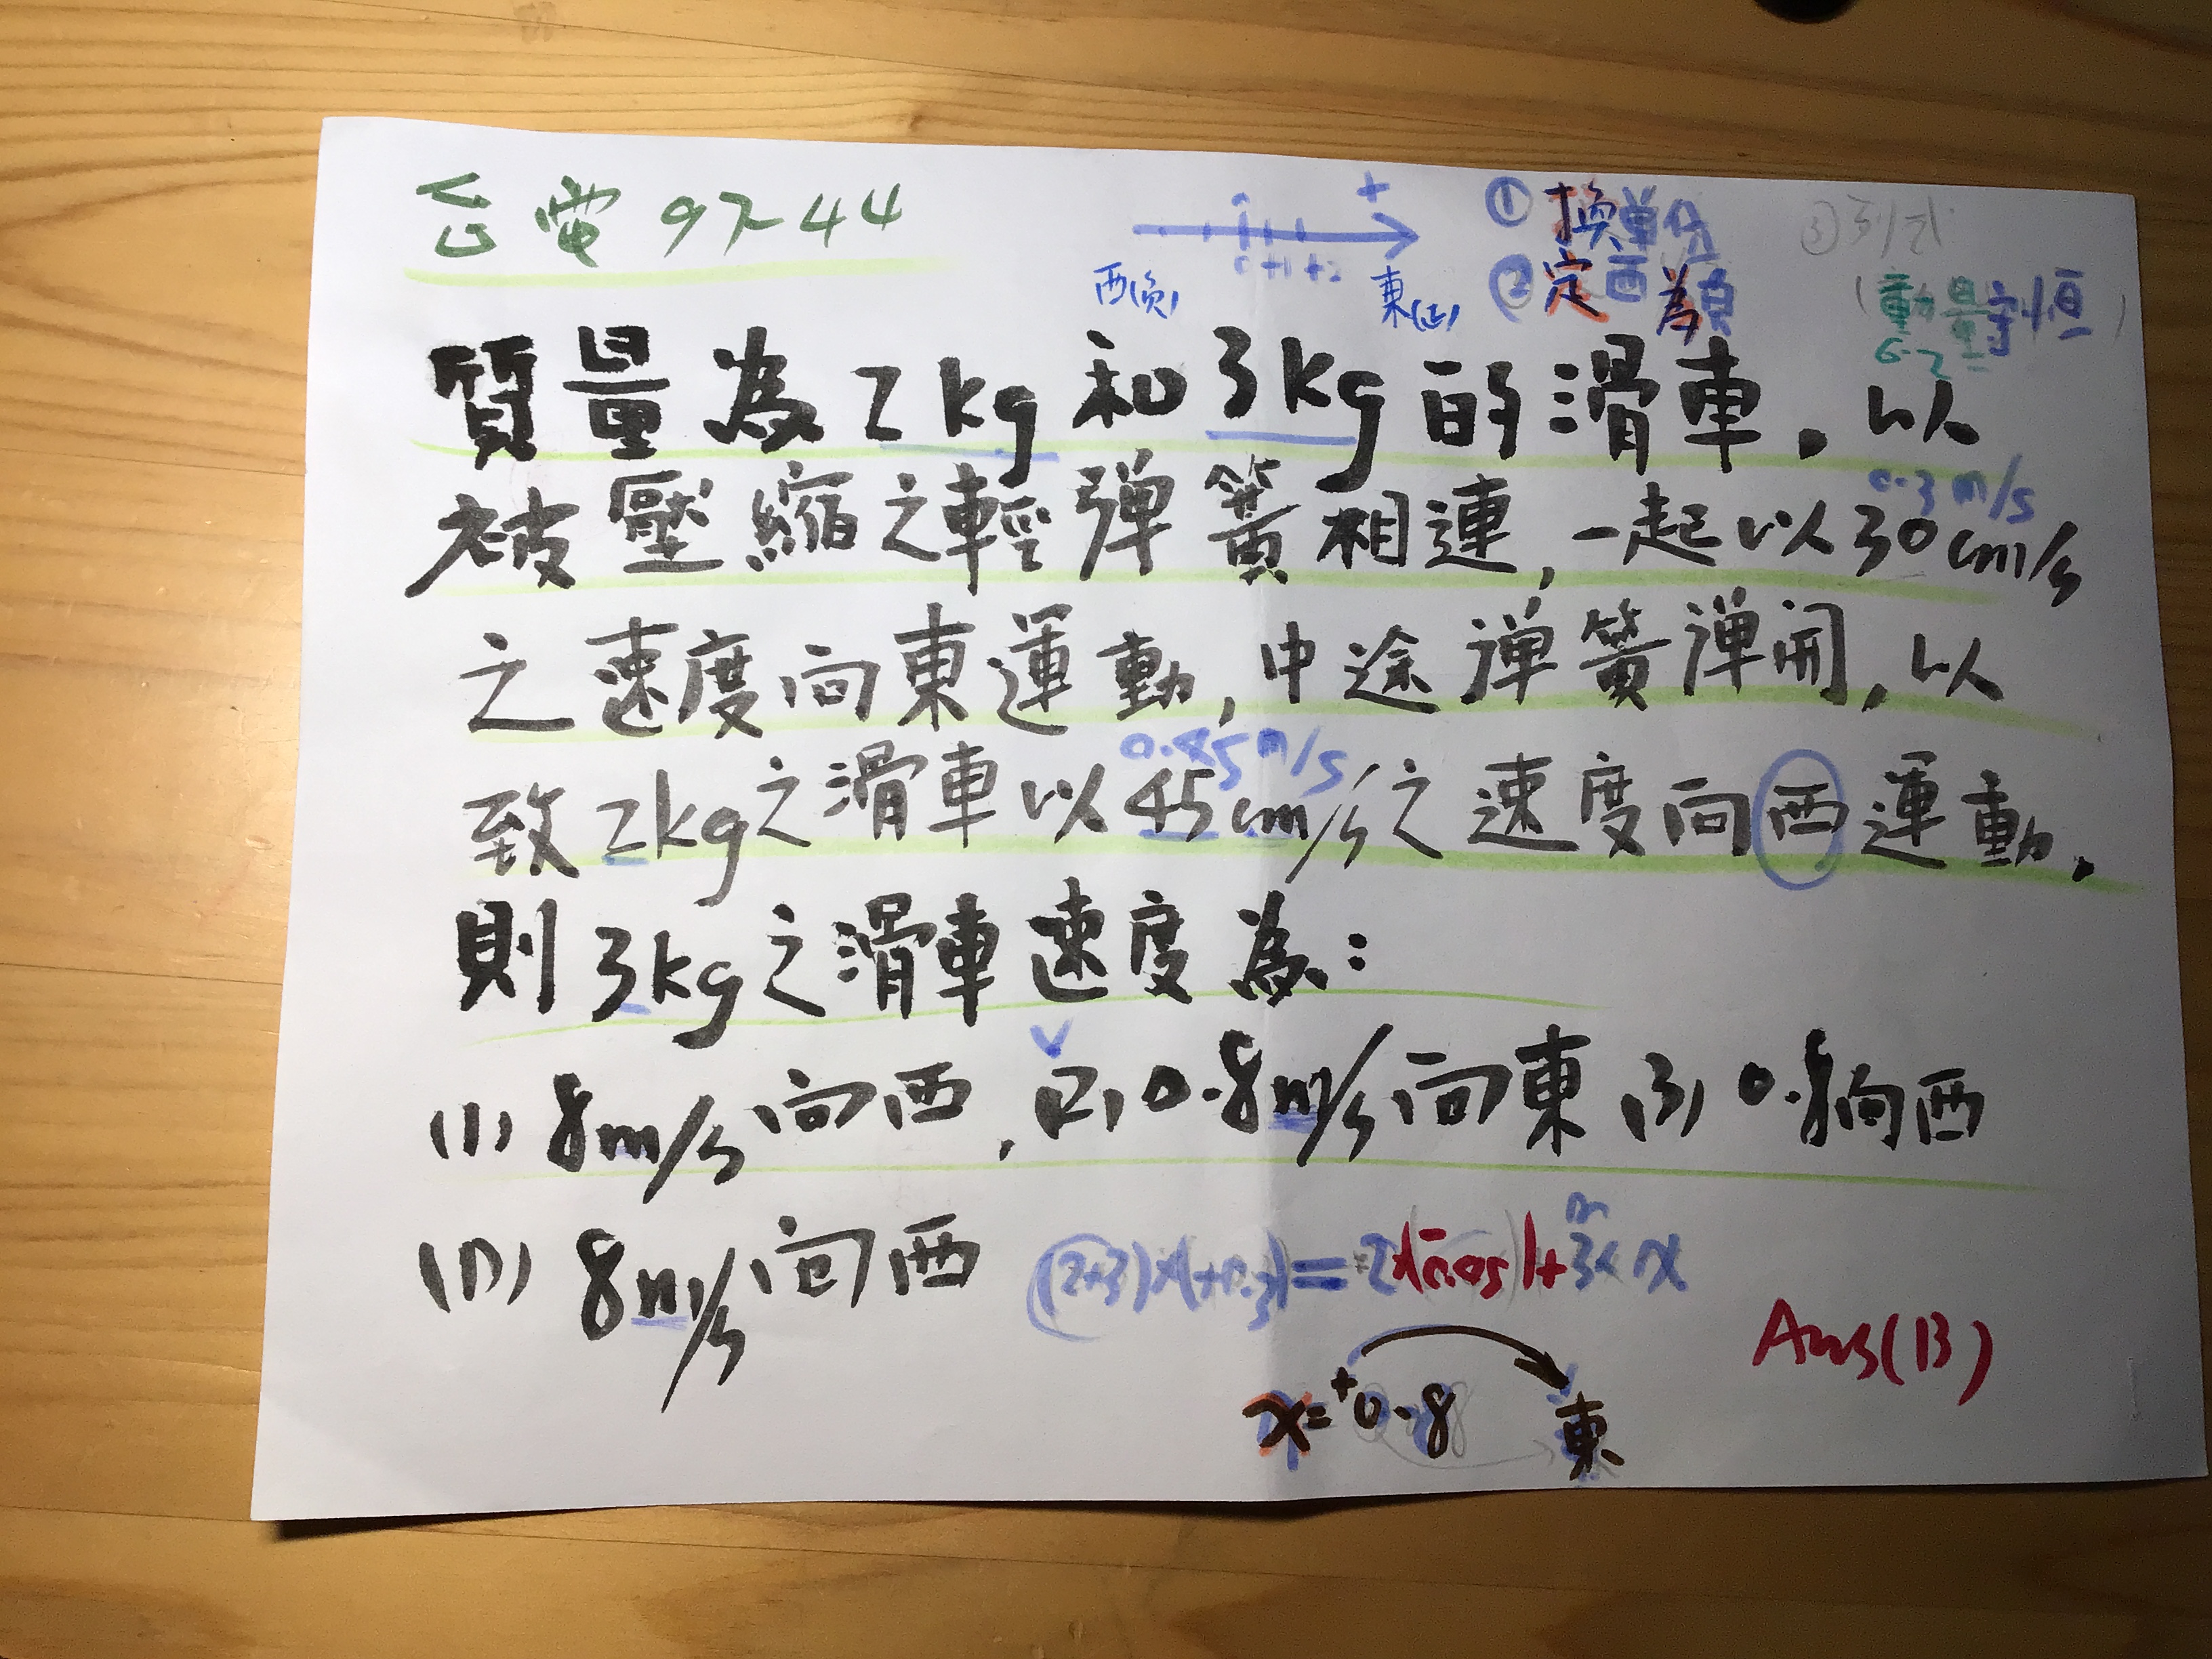 台電 97-44
+
① 換單位
③ 列式
西(負) 0 +1 +2 東(正)
② 定西為負
(動量守恒)
6-2
質量為2kg和3kg的滑車,以
0.3 m/s
被壓縮之輕彈簧相連,一起以30cm/s
之速度向東運動,中途彈簧彈開,以
0.45 m/s
致2kg之滑車以45cm/s之速度向西運動,
則3kg之滑車速度為:
(1) 8m/s向西, (2) 0.8m/s向東 (3) 0.8向西
8m/s向西
Ans(B)
x=+0.8 東